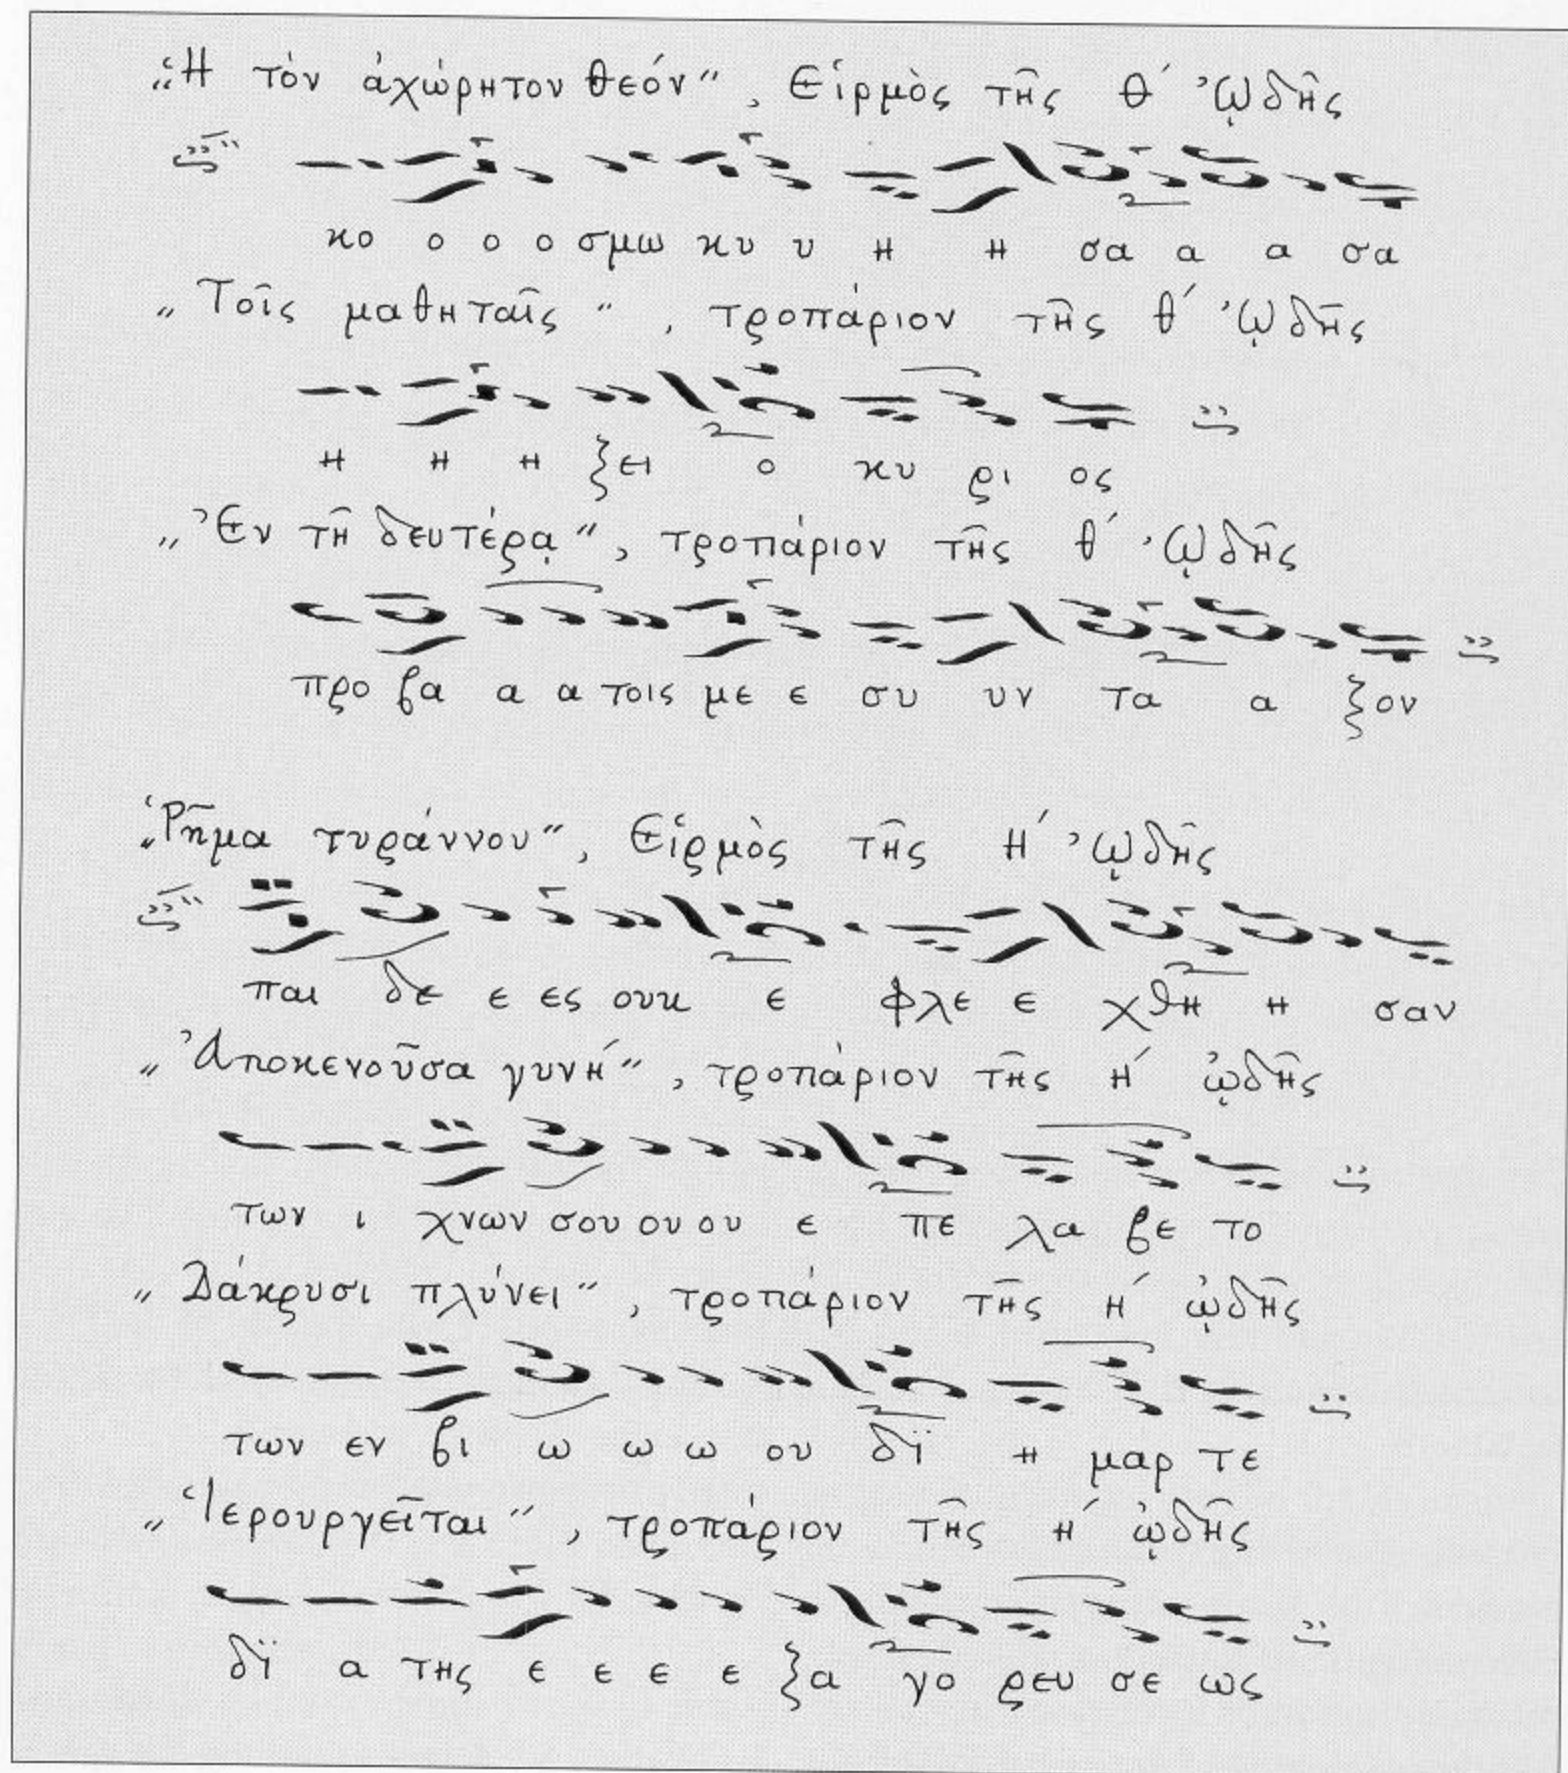 „Ἡ τόν ἀχώρητον θεόν”, Εἱρμὸς τῆς θ΄ ᾨδῆς
κο ο ο ο σμω κυ υ η η σα α α σα
„Τοῖς μαθηταῖς”, τροπάριον τῆς θ΄ ᾨδῆς
η η η ξει ο κυ ρι ος
„Ἐν τῇ δευτέρᾳ”, τροπάριον τῆς θ΄ ᾨδῆς
προ βα α α τοις με ε συ υν τα α ξον
„Ῥῆμα τυράννου”, Εἱρμὸς τῆς Η΄ ᾨδῆς
παι δε ε ες ουκ ε φλε ε χθη η σαν
„Ἀποκενοῦσα γυνή”, τροπάριον τῆς Η΄ ᾠδῆς
των ι χνων σου ου ου ε πε λα βε το
„Δάκρυσι πλύνει”, τροπάριον τῆς Η΄ ᾠδῆς
των εν βι ω ω ω ου δϊ η μαρ τε
„Ἱερουργεῖται”, τροπάριον τῆς η΄ ᾠδῆς
δϊ α της ε ε ε ε ξα γο ρευ σε ως